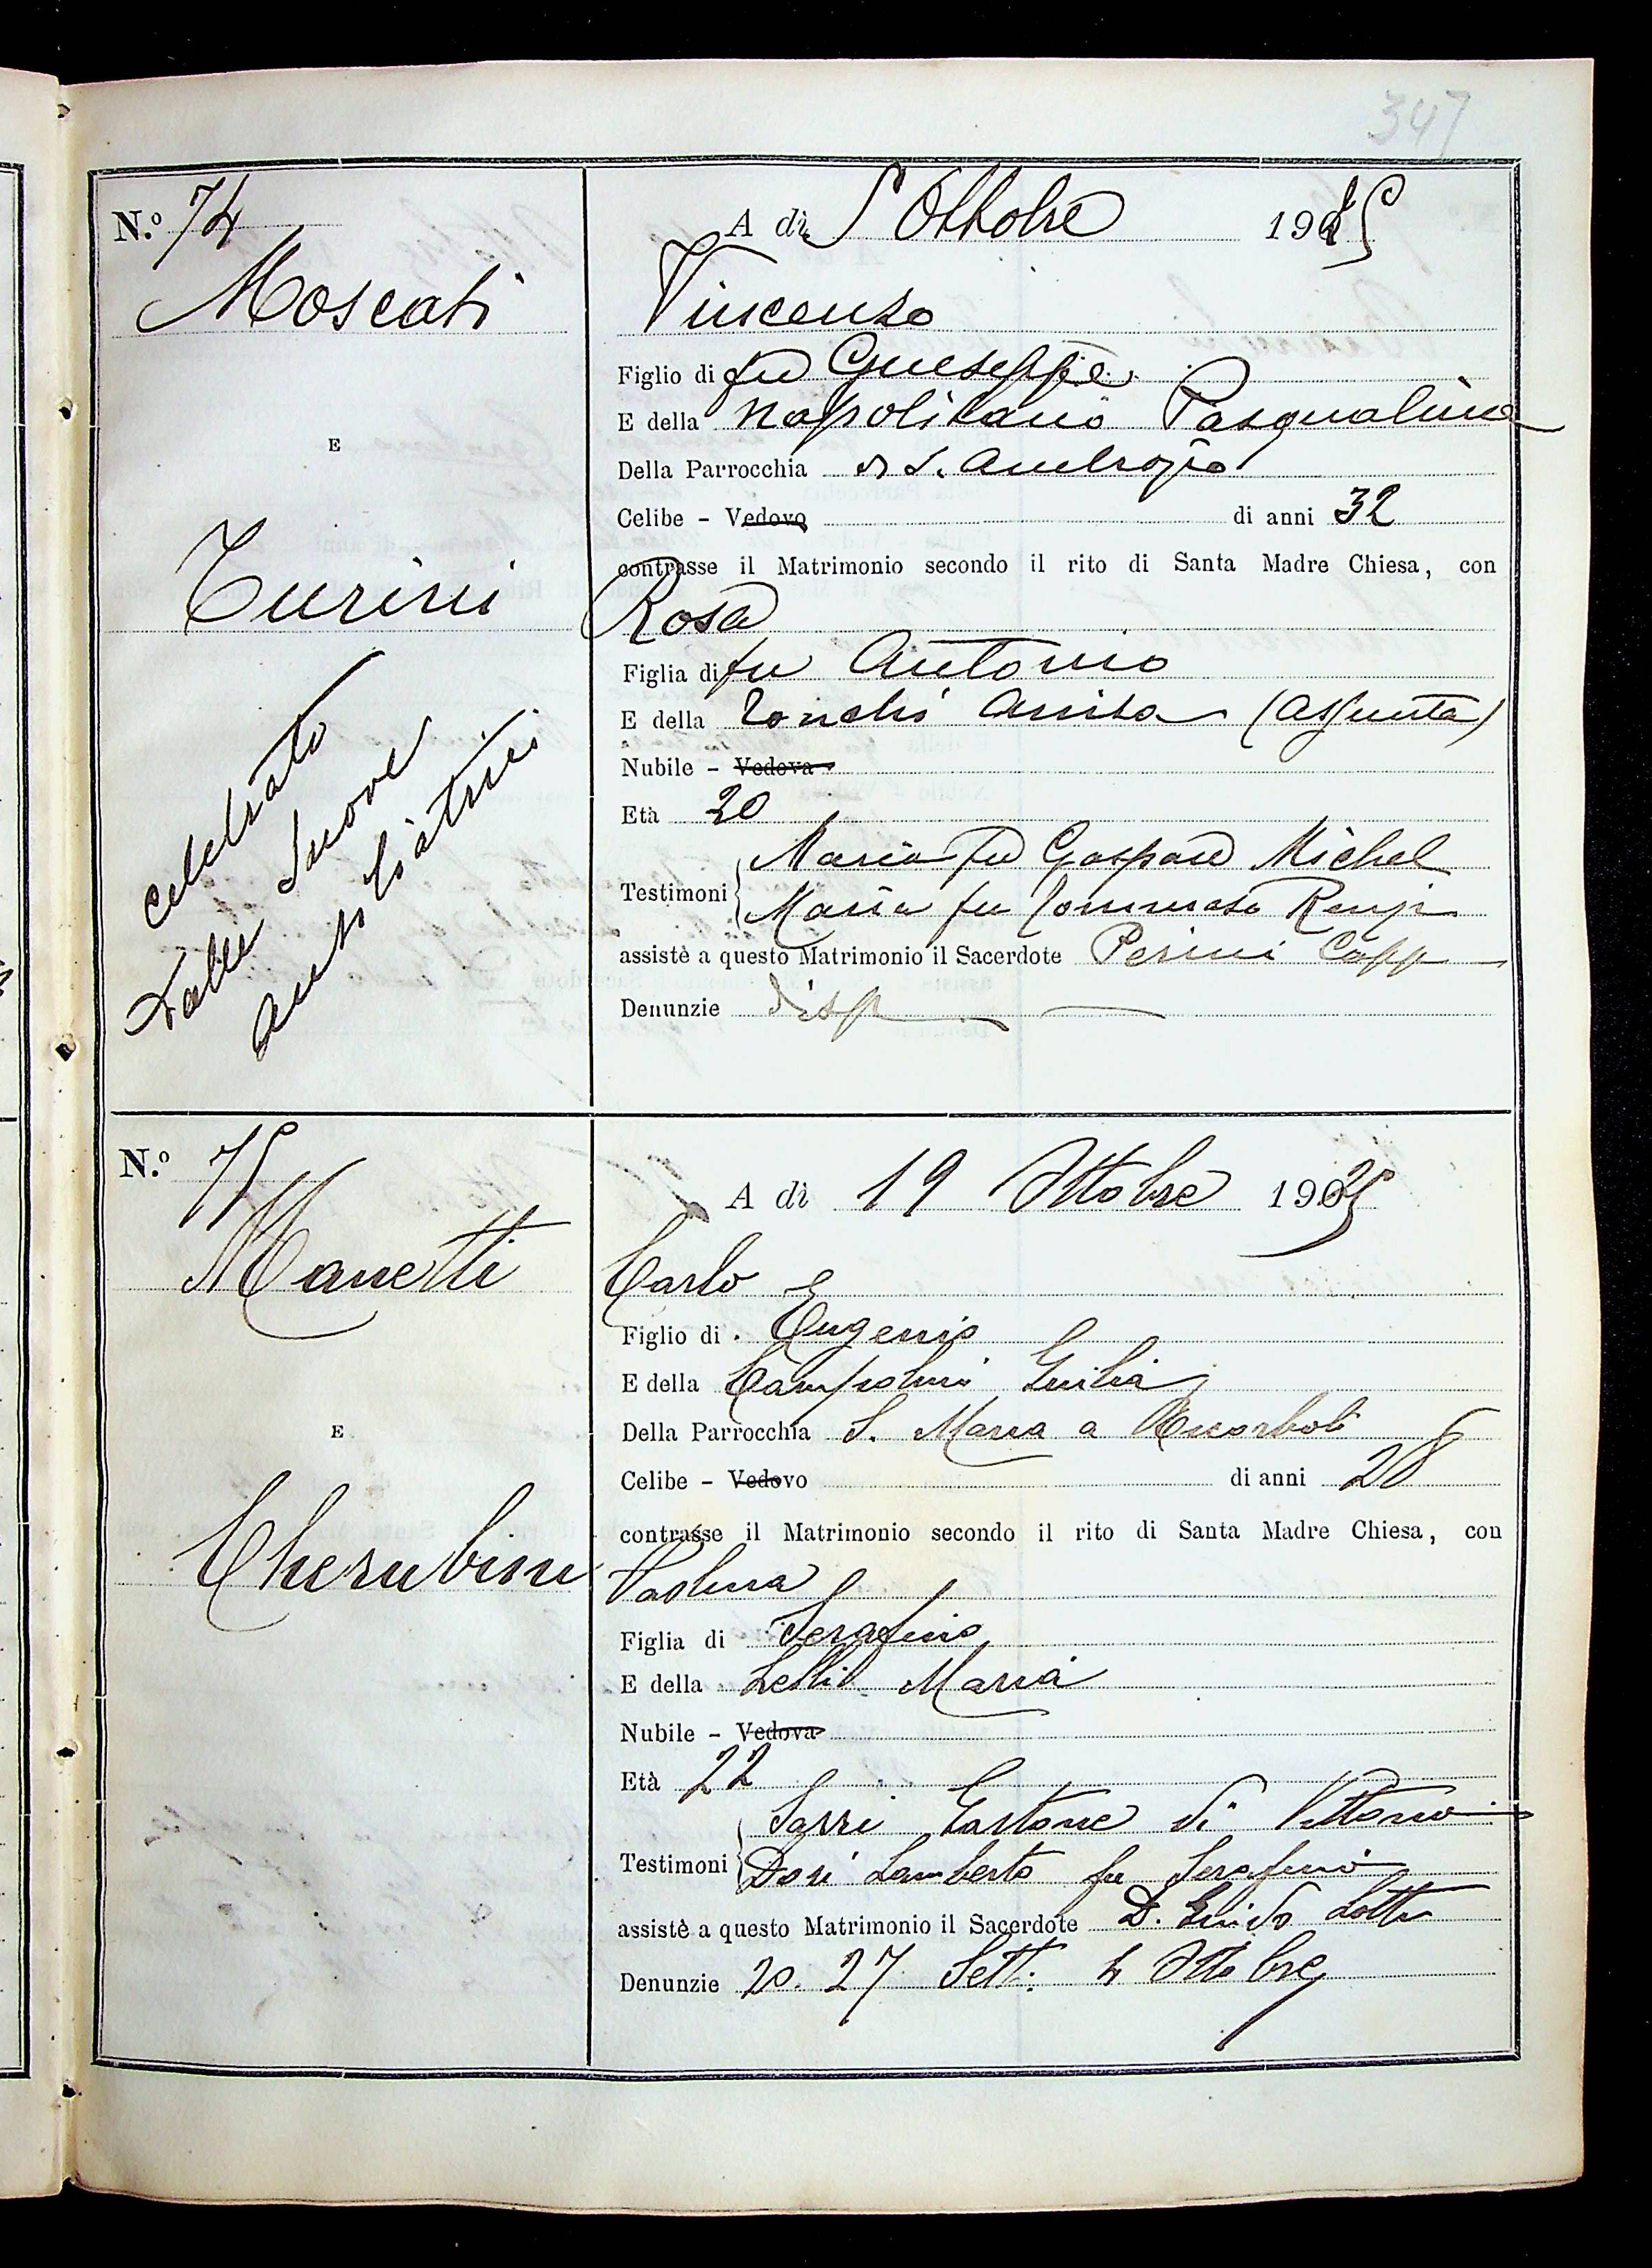 347
N.º 74
A dì 5 Ottobre 1925
Moscati
Vincenzo
Figlio di fu Giuseppe
E della Napolitano Pasqualina
E
Della Parrocchia di S. Ambrogio
Celibe - Vedovo di anni 32
contrasse il Matrimonio secondo il rito di Santa Madre Chiesa, con
Turini
Rosa
Figlia di fu Antonio
E della Annita (Assunta)
Nubile - Vedova
Età 20
celebrato
dalle Suore
Testimoni { Maria fu Gaspare Michel
Maria fu Tommaso
assistè a questo Matrimonio il Sacerdote Perini Capp
Denunzie disp
N.º 75
A dì 19 Ottobre 1925
Manetti
Carlo
Figlio di Eugenio
E della Campolmi Giulia
E
Della Parrocchia S. Maria a Ricorboli
Celibe - Vedovo di anni 28
contrasse il Matrimonio secondo il rito di Santa Madre Chiesa, con
Cherubini
Paolina
Figlia di Serafino
E della Maria
Nubile - Vedova
Età 22
Testimoni { Sarri Gastone di Vittorio
Dori Lamberto fu Serafino
assistè a questo Matrimonio il Sacerdote D. Guido Lotti
Denunzie 20. 27 Sett: 4 Ottobre